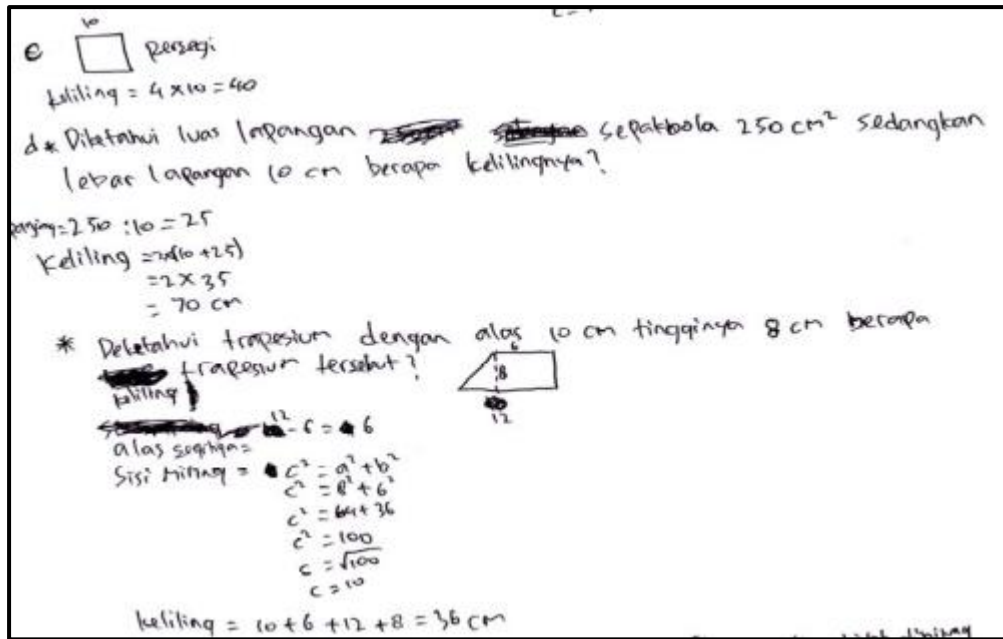 10
e persegi
keliling = 4 x 10 = 40
d * Diketahui luas lapangan sepakbola 250 cm² sedangkan
lebar lapangan 10 cm berapa kelilingnya?
panjang = 250 : 10 = 25
Keliling = 2x(10 + 25)
= 2 x 35
= 70 cm
* Deketahui trapesium dengan alas 10 cm tingginya 8 cm berapa
keliling trapesium tersebut?
6
8
12
12 - 6 = 6
alas segitiga =
Sisi miring = c² = a² + b²
c² = 8² + 6²
c² = 64 + 36
c² = 100
c = √100
c = 10
keliling = 10 + 6 + 12 + 8 = 36 cm